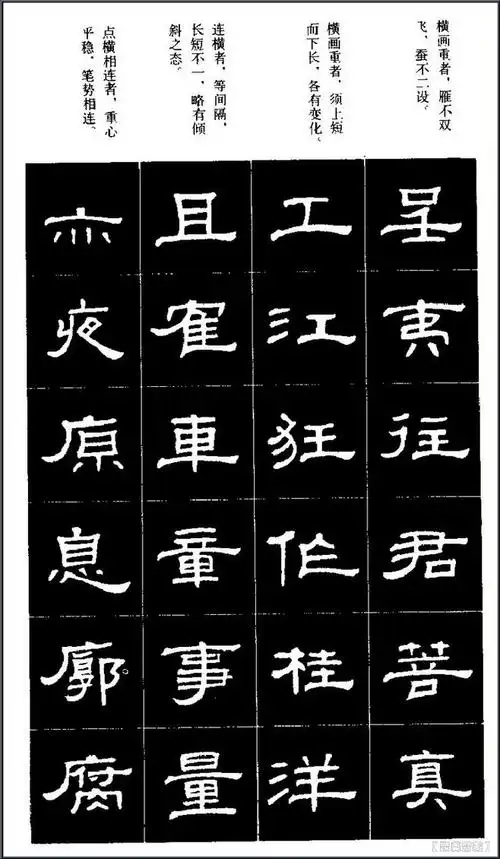 横画重者，雁不双
飞，蚕不二设。
横画重者，须上短
而下长，各有变化。
连横者，等间隔，
长短不一，略有倾
斜之态。
点横相连者，重心
平稳，笔势相连。
呈夷往君菩真
工江狂作桂洋
且寉車章事量
亦夜原息廓腐